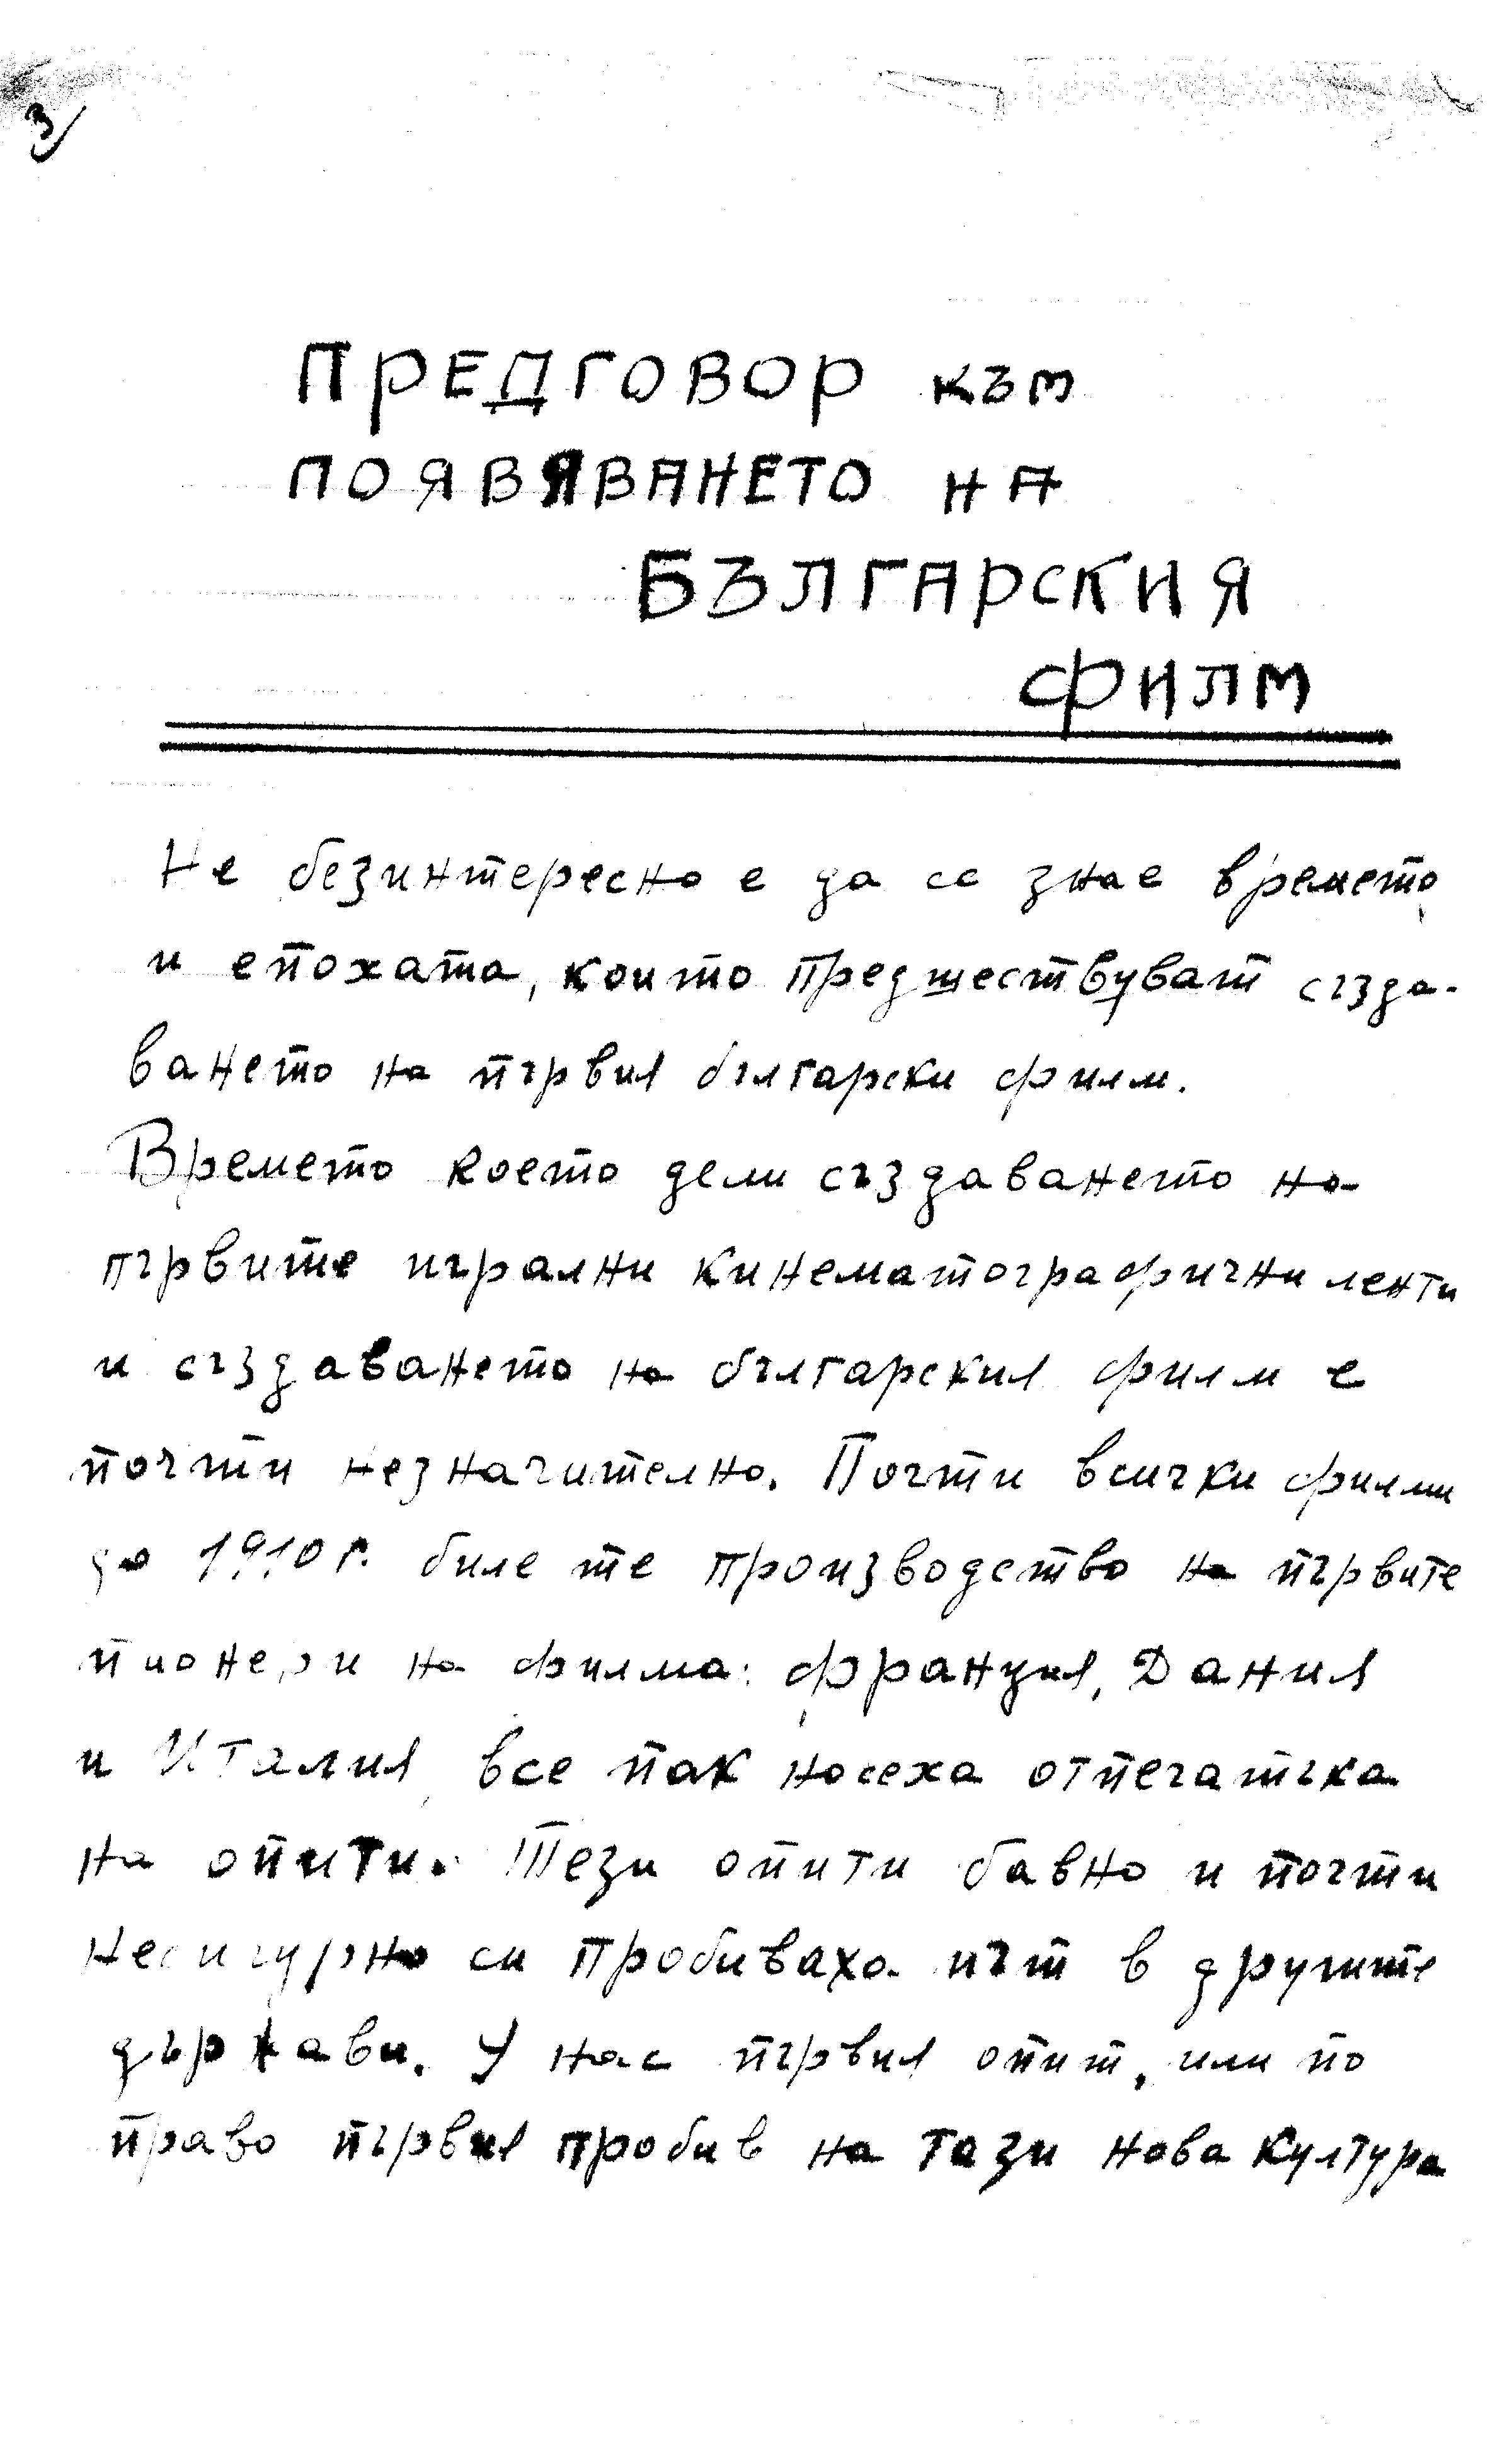 3/
ПРЕДГОВОР към
ПОЯВЯВАНЕТО НА
БЪЛГАРСКИЯ
ФИЛМ
Не безинтересно е да се знае времето
и епохата, които предшествуват създа-
ването на първия български филм.
Времето което дели създаването на
първите игрални кинематографични ленти
и създаването на българския филм е
почти незначително. Почти всички филми
до 1910 г. биле те производство на първите
пионери на филма: Франция, Дания
и Италия, все пак носеха отпечатъка
на опити. Тези опити бавно и почти
несигурно си пробиваха път в другите
държави. У нас първия опит, или по
право първия пробив на тази нова култура